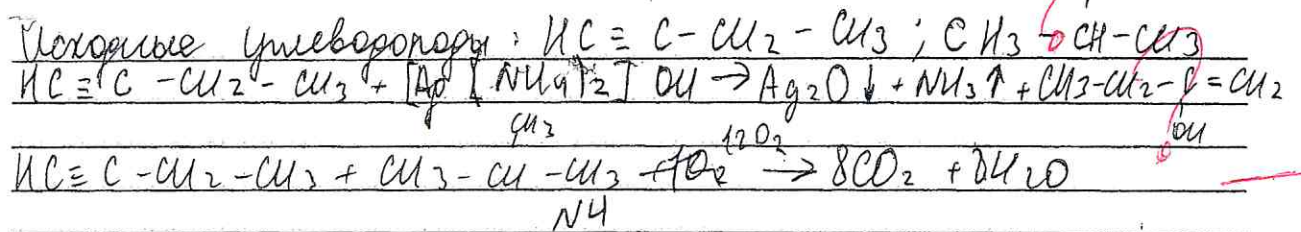 Исходные углеводороды: HC ≡ C - CH2 - CH3 ; CH3 - CH - CH3
HC ≡ C - CH2 - CH3 + [Ag(NH4)2] OH → Ag2O↓ + NH3↑ + CH3-CH2-C=CH2
CH3 OH
12O2
HC ≡ C - CH2 - CH3 + CH3 - CH - CH3 + → 8CO2 + 8H2O
N4